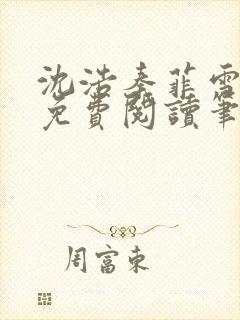 沈浩秦菲雪
免費閱讀筆
周富東